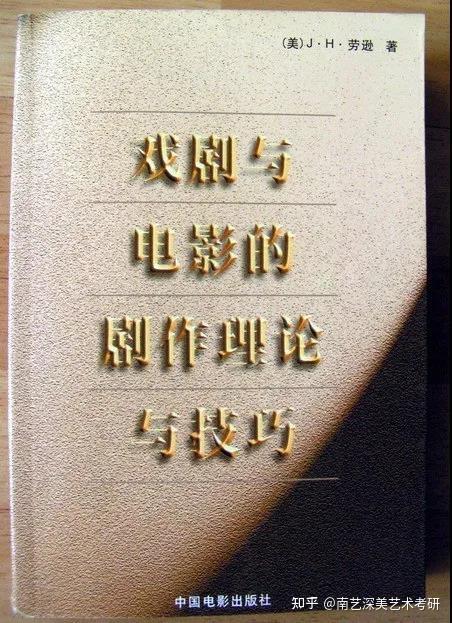 (美)J·H·劳逊 著
戏剧与
电影的
剧作理论
与技巧
中国电影出版社
知乎 @南艺深美艺术考研